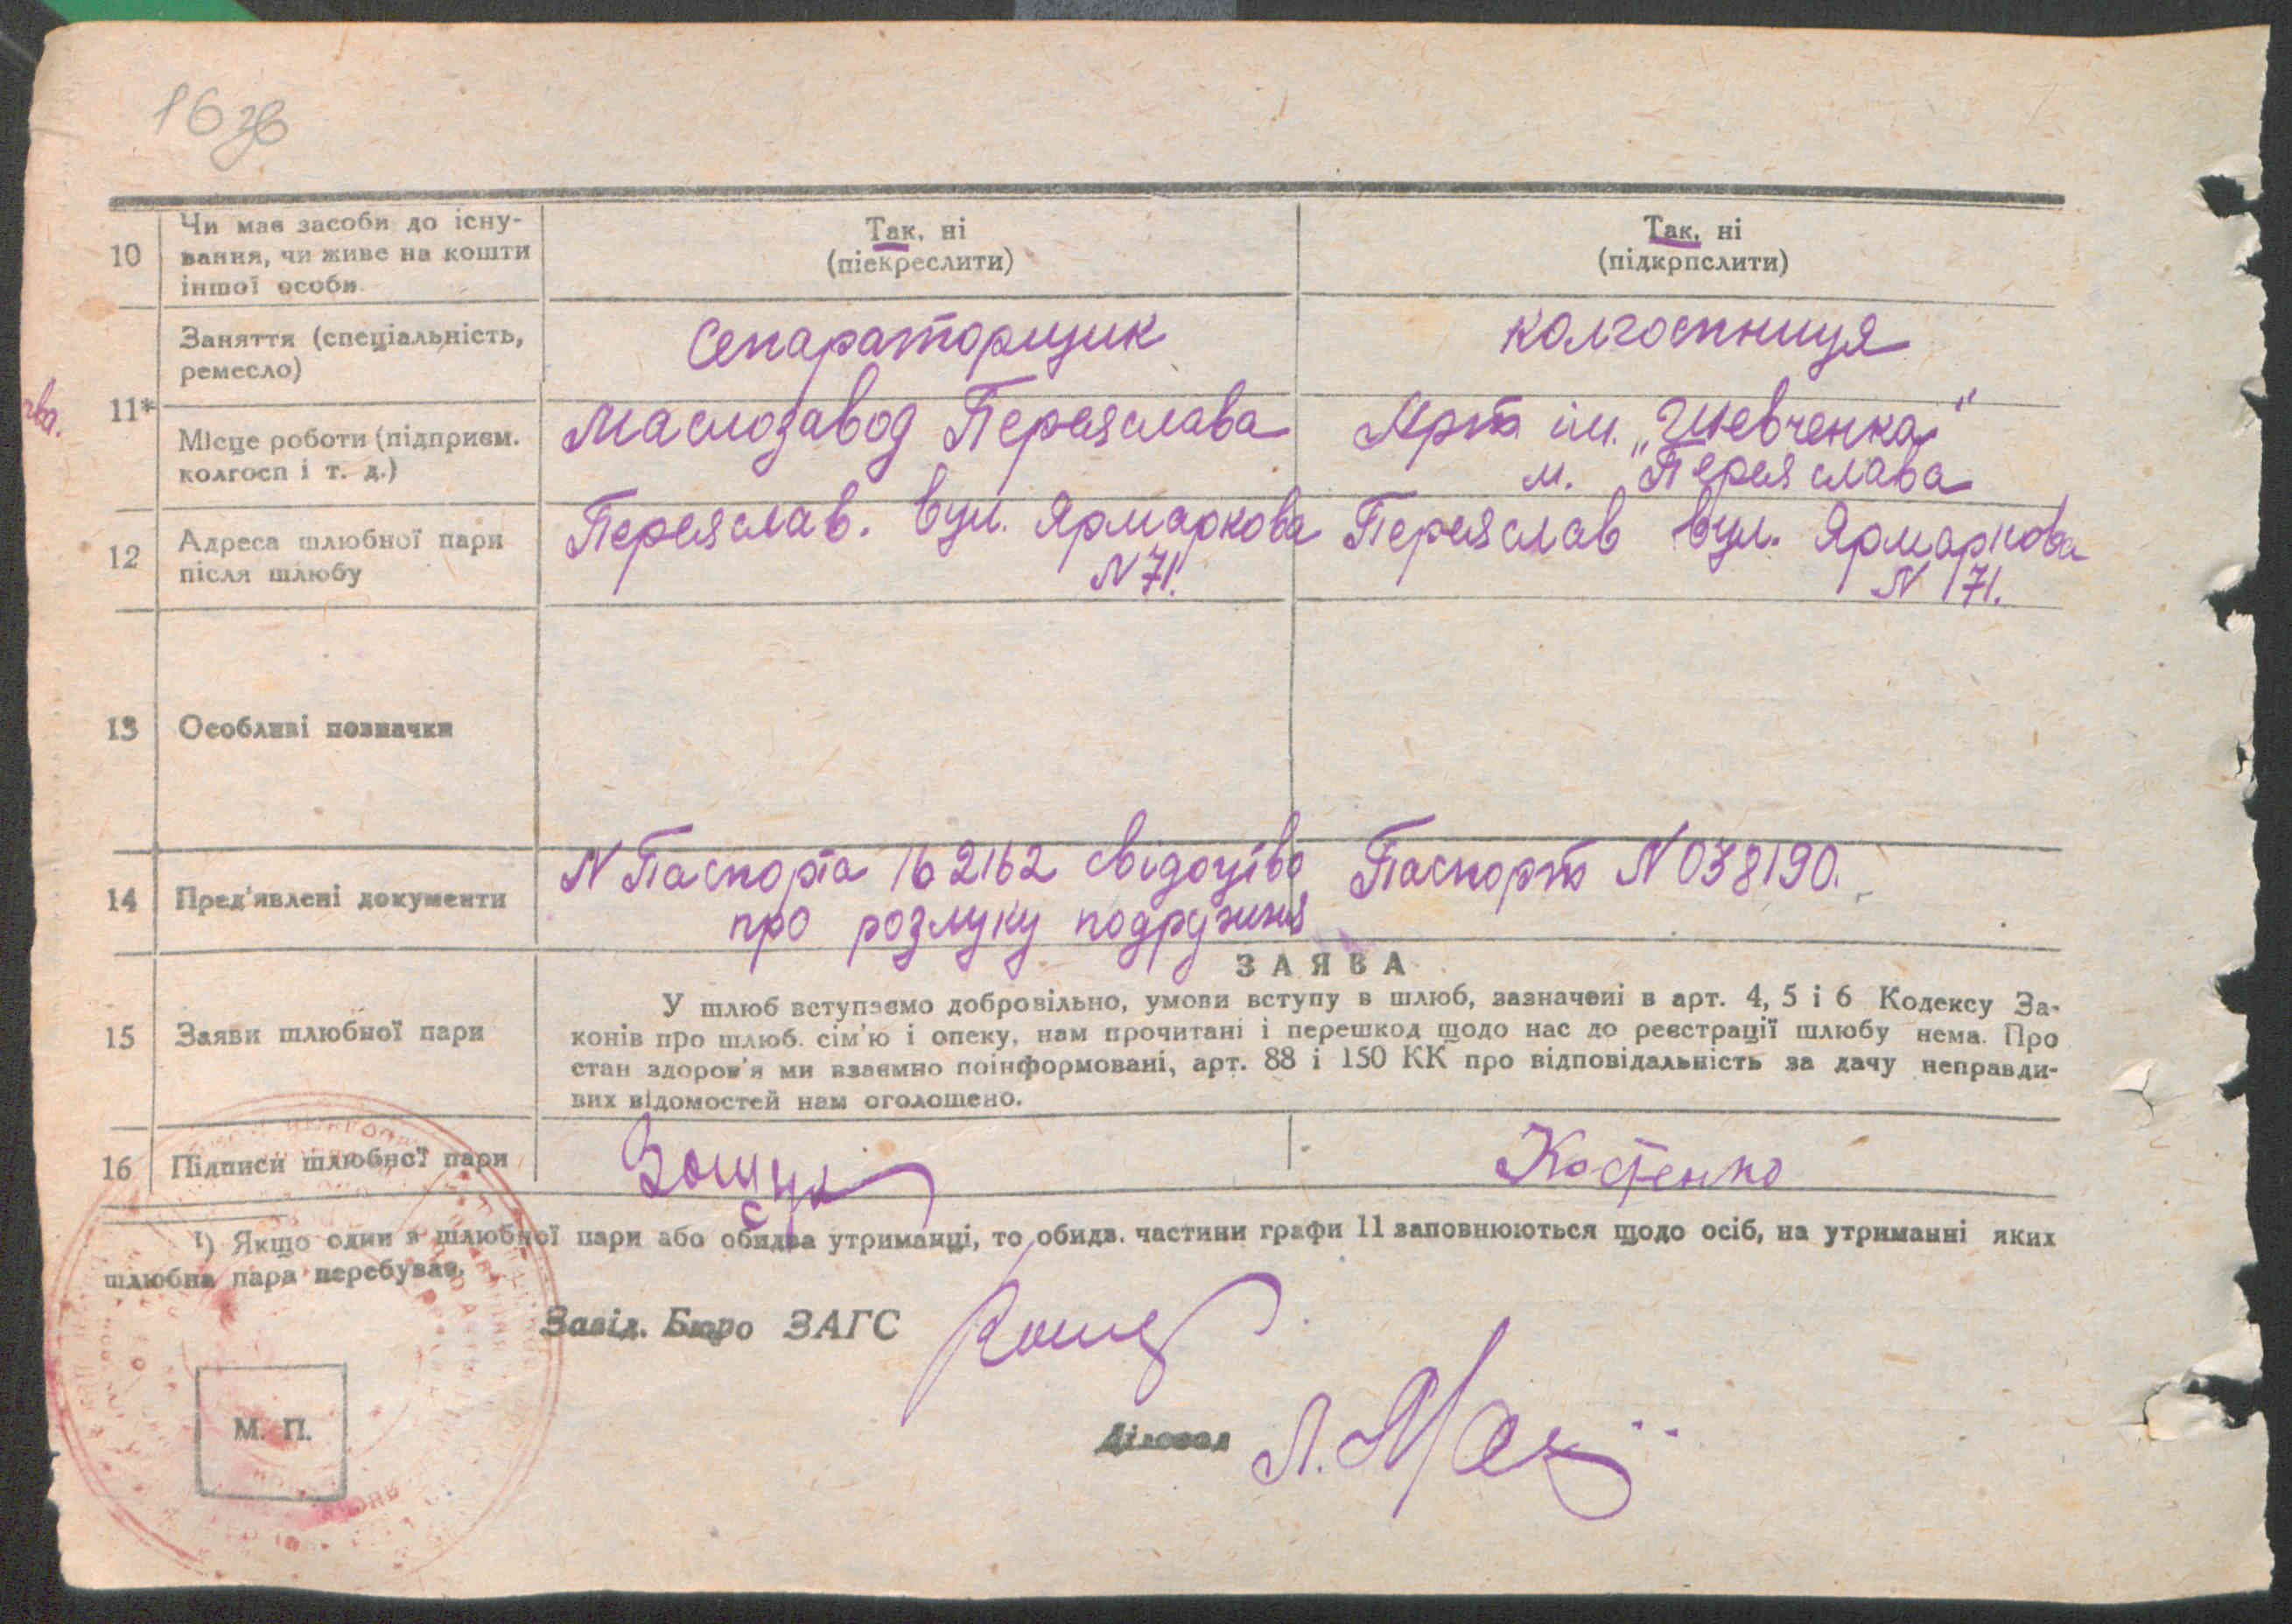 16 зв
10
Чи має засоби до існу-
вання, чи живе на кошти
іншої особи
Так, ні
(піекреслити)
Так, ні
(підкрпслити)
11*
Заняття (спеціальність,
ремесло)
Сепараторщик
колгоспниця
Місце роботи (підприєм.
колгосп і т. д.)
Маслозавод Переяслава
Арт. ім. „Шевченка"
м. Переяслава
12
Адреса шлюбної пари
після шлюбу
Переяслав. вул. Ярмаркова
N 71.
Переяслав вул. Ярмаркова
N 71.
13
Особливі позначки
14
Пред'явлені документи
N Паспорта 162162 свідоцтво
про розлуку подружжя
Паспорт N 038190.
15
Заяви шлюбної пари
ЗАЯВА
У шлюб вступаємо добровільно, умови вступу в шлюб, зазначені в арт. 4, 5 і 6 Кодексу За-
конів про шлюб. сім'ю і опеку, нам прочитані і перешкод щодо нас до реєстрації шлюбу нема. Про
стан здоров'я ми взаємно поінформовані, арт. 88 і 150 КК про відповідальність за дачу неправди-
вих відомостей нам оголошено.
16
Підписи шлюбної пари
Костенко
¹) Якщо один з шлюбної пари або обидва утриманці, то обидв. частини графи 11 заповнюються щодо осіб, на утриманні яких
шлюбна пара перебуває.
Завід. Бюро ЗАГС
Діловод
М. П.